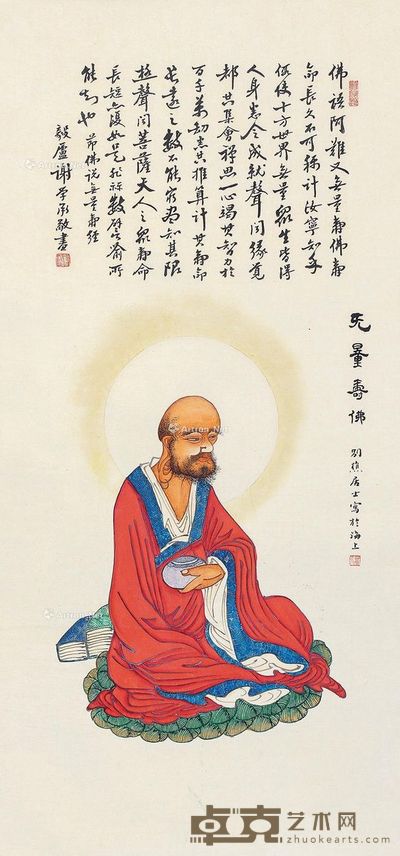 佛語阿難又無量壽佛壽
命長久不可稱計汝寧知乎
假使十方世界無量眾生皆得
人身悉令成就聲聞緣覺
都共集會禅思一心竭其智力於
百千萬劫悉共推算計其壽命
長遠之數不能窮盡知其限
極聲聞菩薩天人之眾壽命
長短亦復如是非祘數譬喻所
能知也 節佛說無量壽經
毅盧謝 承敬書
无量壽佛
別樵居士寫於海上
卓克艺术网
http://www.zhuokearts.com